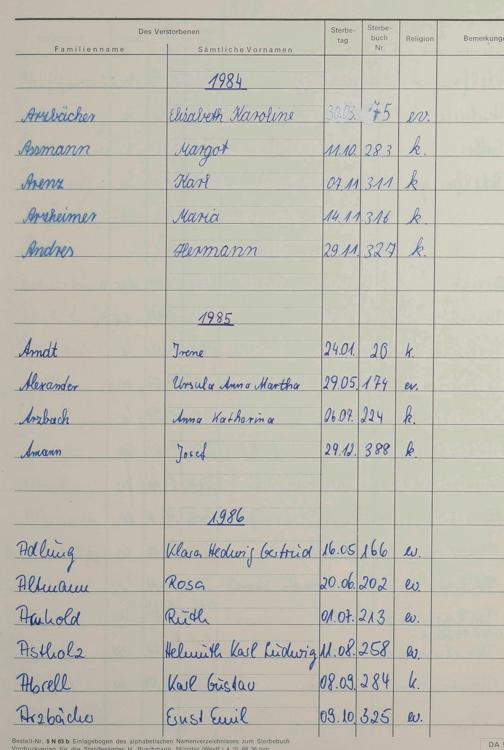 Des Verstorbenen
Familienname Sämtliche Vornamen Sterbe-tag Sterbe-buch Nr. Religion Bemerkunge
1984
Arzbächer Elisabeth Karoline 30.03. 75 ev.
Assmann Margot 11.10. 283 k.
Arenz Karl 07.11 311 k
Arzheimer Maria 14.11 316 k
Andres Hermann 29.11. 327 k.
1985
Arndt Irene 24.01. 20 k.
Alexander Ursula Anna Martha 29.05. 174 ev.
Arzbach Anna Katharina 06.07. 224 k.
Amann Josef 29.12. 388 k.
1986
Adlung Klara Hedwig Gertrud 16.05 166 ev.
Altmann Rosa 20.06. 202 ev.
Arnhold Ruth 01.07. 213 ev.
Astholz Helmuth Karl Ludwig 11.08. 258 ev.
Abrell Karl Gustav 08.09. 284 k.
Arzbächer Ernst Emil 09.10. 325 ev.
Bestell-Nr. S N 03 b Einlagebogen des alphabetischen Namenverzeichnisses zum Sterbebuch